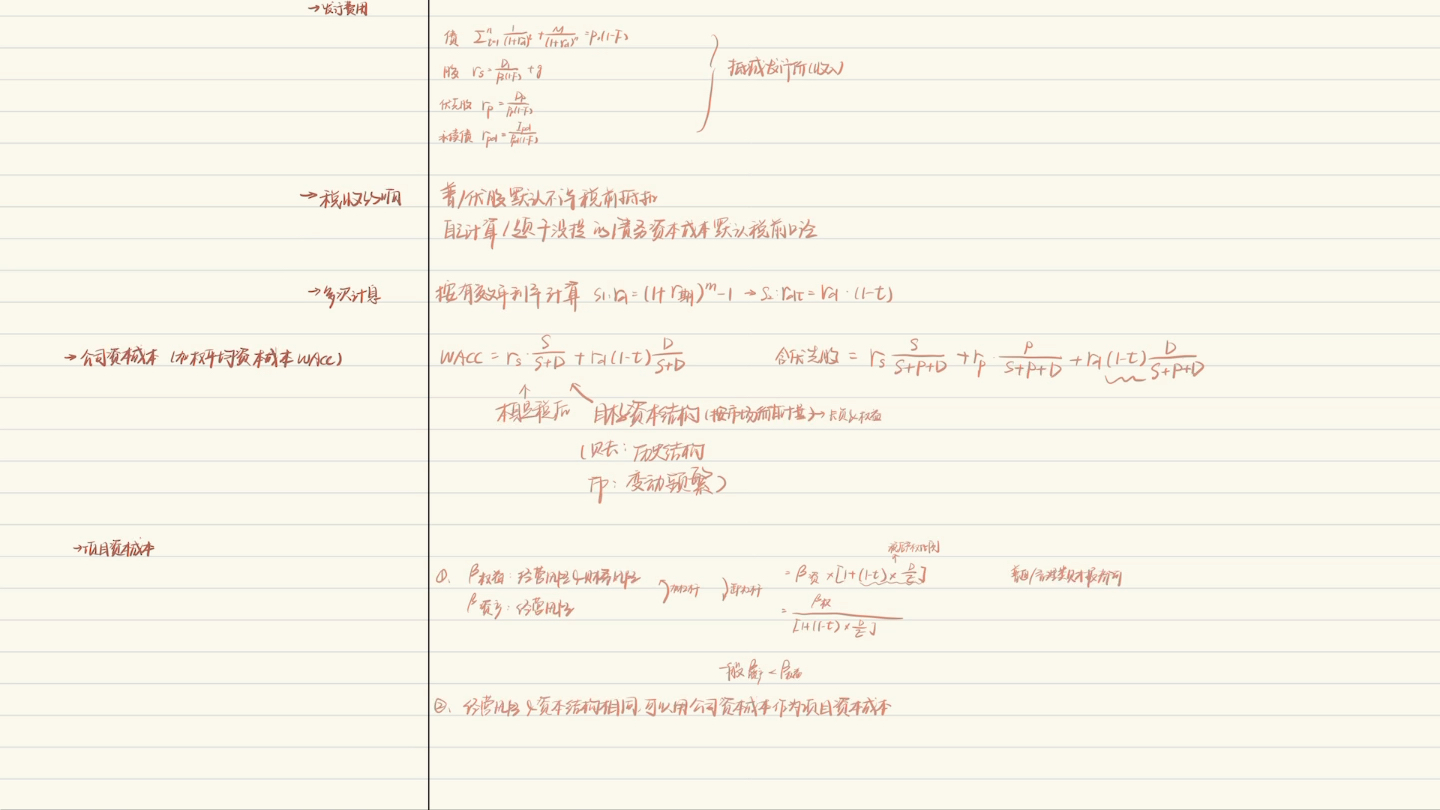 →发行费用
债 Σⁿₜ₌₁ I/(1+rd)ᵗ + M/(1+rd)ⁿ = P₀(1-F)
股 rs = D₁/P₀(1-F) + g
优先股 rp = Dp/Pp(1-F)
永续债 rpd = Ipd/Ppd(1-F)
抵减发行所(收入)
→税收影响
普/优股默认不考税前抵扣
自己计算/题干没提的债务资本成本默认税前口径
→多次计息
按有效年利率计算 S1: rd = (1+r期)ᵐ-1 → S2: rdt = rd·(1-t)
→公司资本成本 (加权平均资本成本 WACC)
WACC = rs · S/(S+D) + rd(1-t) D/(S+D)
含优先股 = rs S/(S+P+D) + rp · P/(S+P+D) + rd(1-t) D/(S+P+D)
税后
目标资本结构 (按市场价值计量) →
(账: 历史结构
市: 变动频繁)
→项目资本成本
①. β权益: 经营风险&财务风险
加杠杆
卸杠杆
= β资 × [1+(1-t)× D/E]
β资产: 经营风险
= β权/[1+(1-t)× D/E]
一般 β资产 < β权益
②. 经营风险&资本结构相同,可以用公司资本成本作为项目资本成本